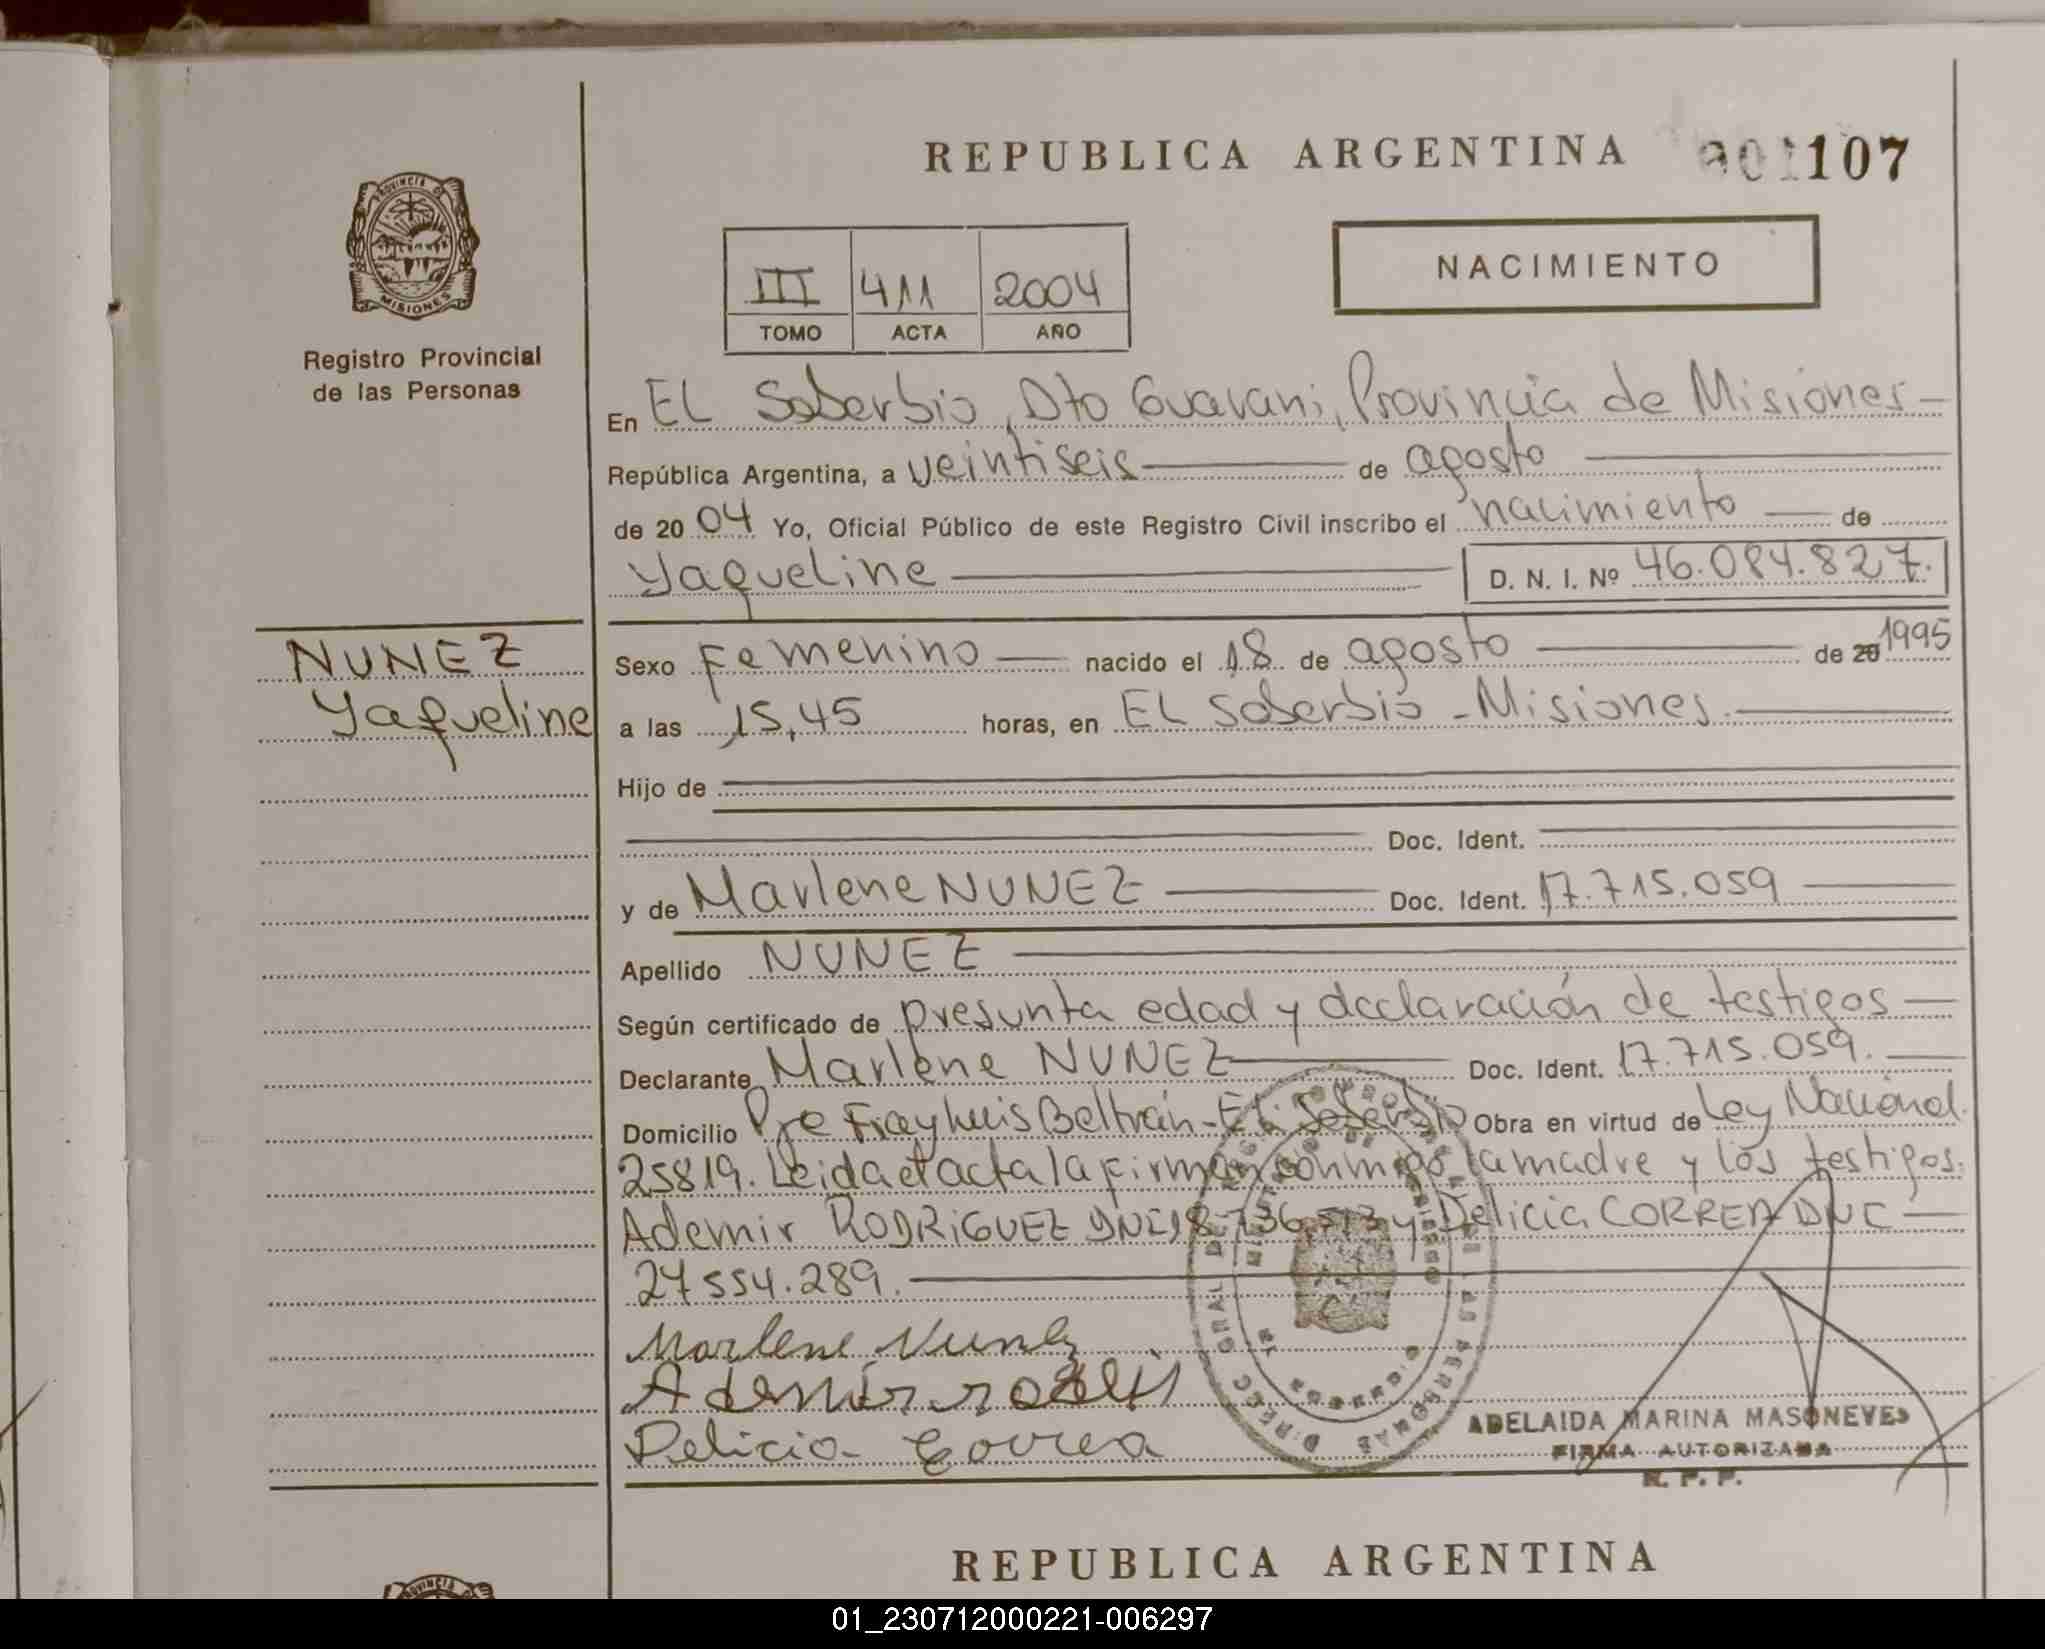 REPUBLICA ARGENTINA 001107
PROVINCIA DE MISIONES
Registro Provincial
de las Personas
NACIMIENTO
III 411 2004
TOMO ACTA AÑO
En EL Soberbio, Dto Guarani, Provincia de Misiones
República Argentina, a veintiseis de agosto
de 2004 Yo, Oficial Público de este Registro Civil inscribo el nacimiento de
Yaqueline D. N. I. Nº 46.084.827.
NUNEZ
Yaqueline
Sexo Femenino nacido el 18 de agosto de 20 1995
a las 15,45 horas, en EL Soberbio - Misiones.
Hijo de
Doc. Ident.
y de Marlene NUNEZ Doc. Ident. 17.715.059
Apellido NUNEZ
Según certificado de presunta edad y declaración de testigos
Declarante Marlene NUNEZ Doc. Ident. 17.715.059.
Domicilio Pje Fray Luis Beltrán - EL Soberbio Obra en virtud de Ley Nacional
25819. Leida el acta la firman conmigo la madre y los testigos.
Ademir RODRIGUEZ DNI 18.736.513 y Delicia CORREA DNI
27554.289.
Marlene Nunez
Ademir
Delicia Correa
ADELAIDA MARINA MASONEVES
FIRMA AUTORIZADA
R. P. P.
REPUBLICA ARGENTINA
01_230712000221-006297